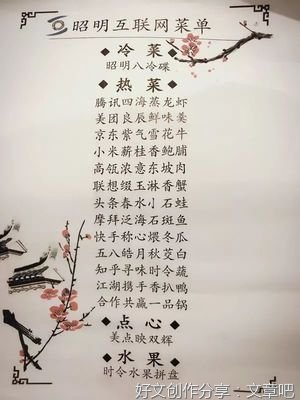 昭明互联网菜单
◆冷菜◆
昭明八冷碟
◆热菜◆
腾讯四海蒸龙虾
美团良辰鲜味羹
京东紫气雪花牛
小米薪桂香鲍脯
高瓴浓意东坡肉
联想缀玉淋香蟹
头条春水小石蛙
摩拜泛海石斑鱼
快手称心煨冬瓜
五八皓月秋茭白
知乎寻味时令蔬
江湖携手香扒鸭
合作共赢一品锅
◆点心◆
美点映双辉
◆水果◆
时令水果拼盘
好文创作分享-文章吧